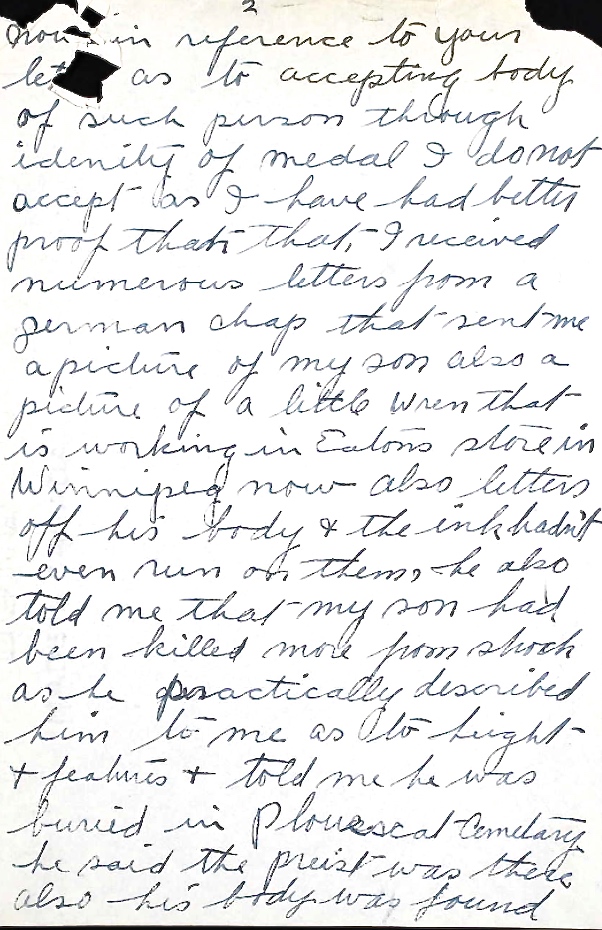 2
now in reference to your
let as to accepting body
of such person through
idenity of medal I do not
accept as I have had better
proof thats that, I received
numerous letters from a
german chap that sent me
a picture of my son also a
picture of a little wren that
is working in Eatons store in
Winnipeg now also letters
off his body & the ink hadn't
even run on them, he also
told me that my son had
been killed more from shock
as he practically described
him to me as to hight
& features & told me he was
buried in Plouescat Cemetary
he said the preist was there
also his body was found